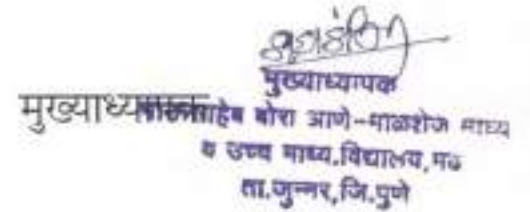 मुख्याध्यापक
मुख्याध्यापक
बोरा आणे-माळशेज माध्य
व उच्च माध्य.विद्यालय, मढ
ता.जुन्नर, जि.पुणे